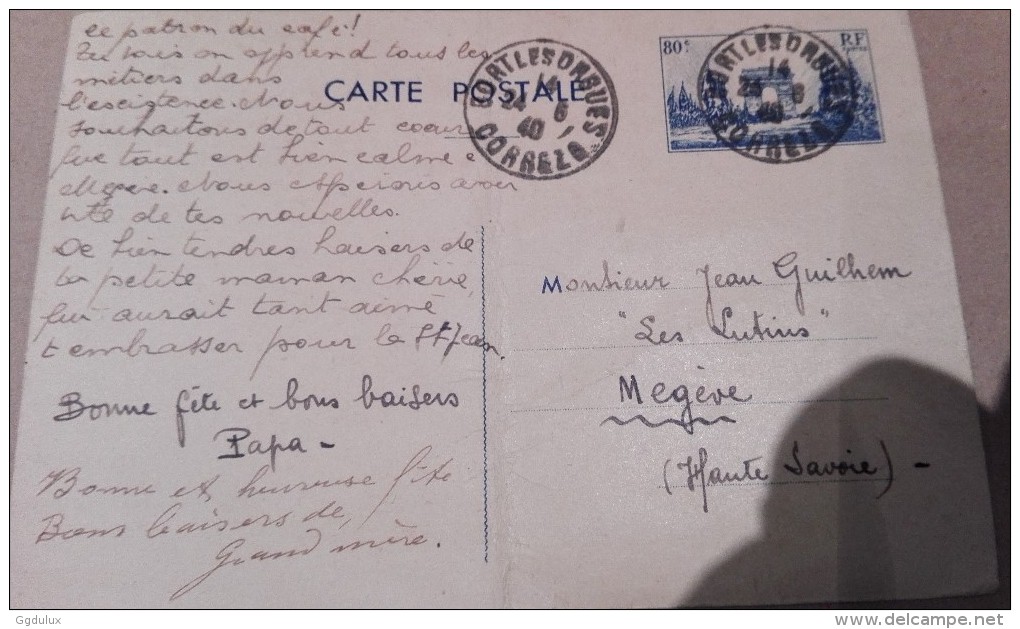 ce patron du café!
Tu vois on apprend tous les
métiers dans
l'existence. Nous
souhaitons de tout coeur
que tout est bien calme
Megève. Nous espérons avoir
vite de tes nouvelles.
De bien tendres baisers de
ta petite maman chérie,
qui aurait tant aimé
t'embrasser pour la St Jean.
Bonne fête et bons baisers
Papa -
Bonne et heureuse fête
Bons baisers de,
Grand mère.
CARTE POSTALE
BORT LES ORGUES
14
24 6
40
CORREZE
80c
RF
BORT LES ORGUES
14
25 6
40
CORREZE
Monsieur Jean Guilhem
"Les Lutins"
Megève
(Haute Savoie) -
Ggdulux
delcampe.net